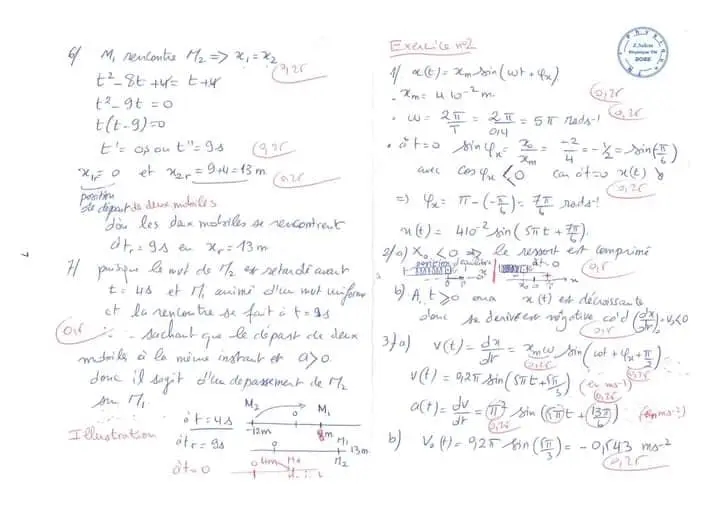 6/ M₁ rencontre M₂ => x₁ = x₂
0,25
t² - 8t + 4 = t + 4
t² - 9t = 0
t(t-9) = 0
t' = 0s ou t'' = 9s
0,25
x₁r = 0 et x₂r = 9+4 = 13 m
0,25
position
de départ de deux mobiles
donc les deux mobiles se rencontrent
à tr = 9s en xr = 13 m
7/ puisque le mvt de M₂ est retardé avant
t = 4s et M₁ animé d'un mvt uniforme
et la rencontre se fait à t = 9s
0,5
sachant que le départ de deux
mobile à le même instant et a>0.
donc il s'agit d'un dépassement de M₂
sur M₁.
Illustration
à t = 4s
M₂ 0 M₁
-12m 8m
à tr = 9s
0 M₁ 13m
M₂
à t = 0
0 4m
7
Exercice n°2
2022
1/ x(t) = xm sin(ωt + φx)
0,25
• xm = 4 10⁻² m.
• ω = 2π/T = 2π/0,4 = 5π rads⁻¹
0,25
• à t=0 sin φx = x₀/xm = -2/4 = -1/2 = sin(π/6)
avec cos φx < 0 car à t=0 x(t) ↘
0,25
=> φx = π - (-π/6) = 7π/6 rads⁻¹
x(t) = 4 10⁻² sin(5πt + 7π/6).
2/ a) x₀ < 0 => le ressort est comprimé
position équilibre à t = 0
0,5
b) A t ≥ 0 on a x(t) est décroissante
donc sa dérivée est négative càd (dx/dt)₀ = V₀ < 0
0,25
3/ a) v(t) = dx/dt = xm ω sin(ωt + φx + π/2)
0,25
v(t) = 0,2π sin(5πt + 5π/3) (en ms⁻¹)
0,25
a(t) = dv/dt = π² sin(5πt + 13π/6) (en ms⁻²)
0,25
b) V₀(t) = 0,2π sin(5π/3) = -0,543 ms⁻²
0,25